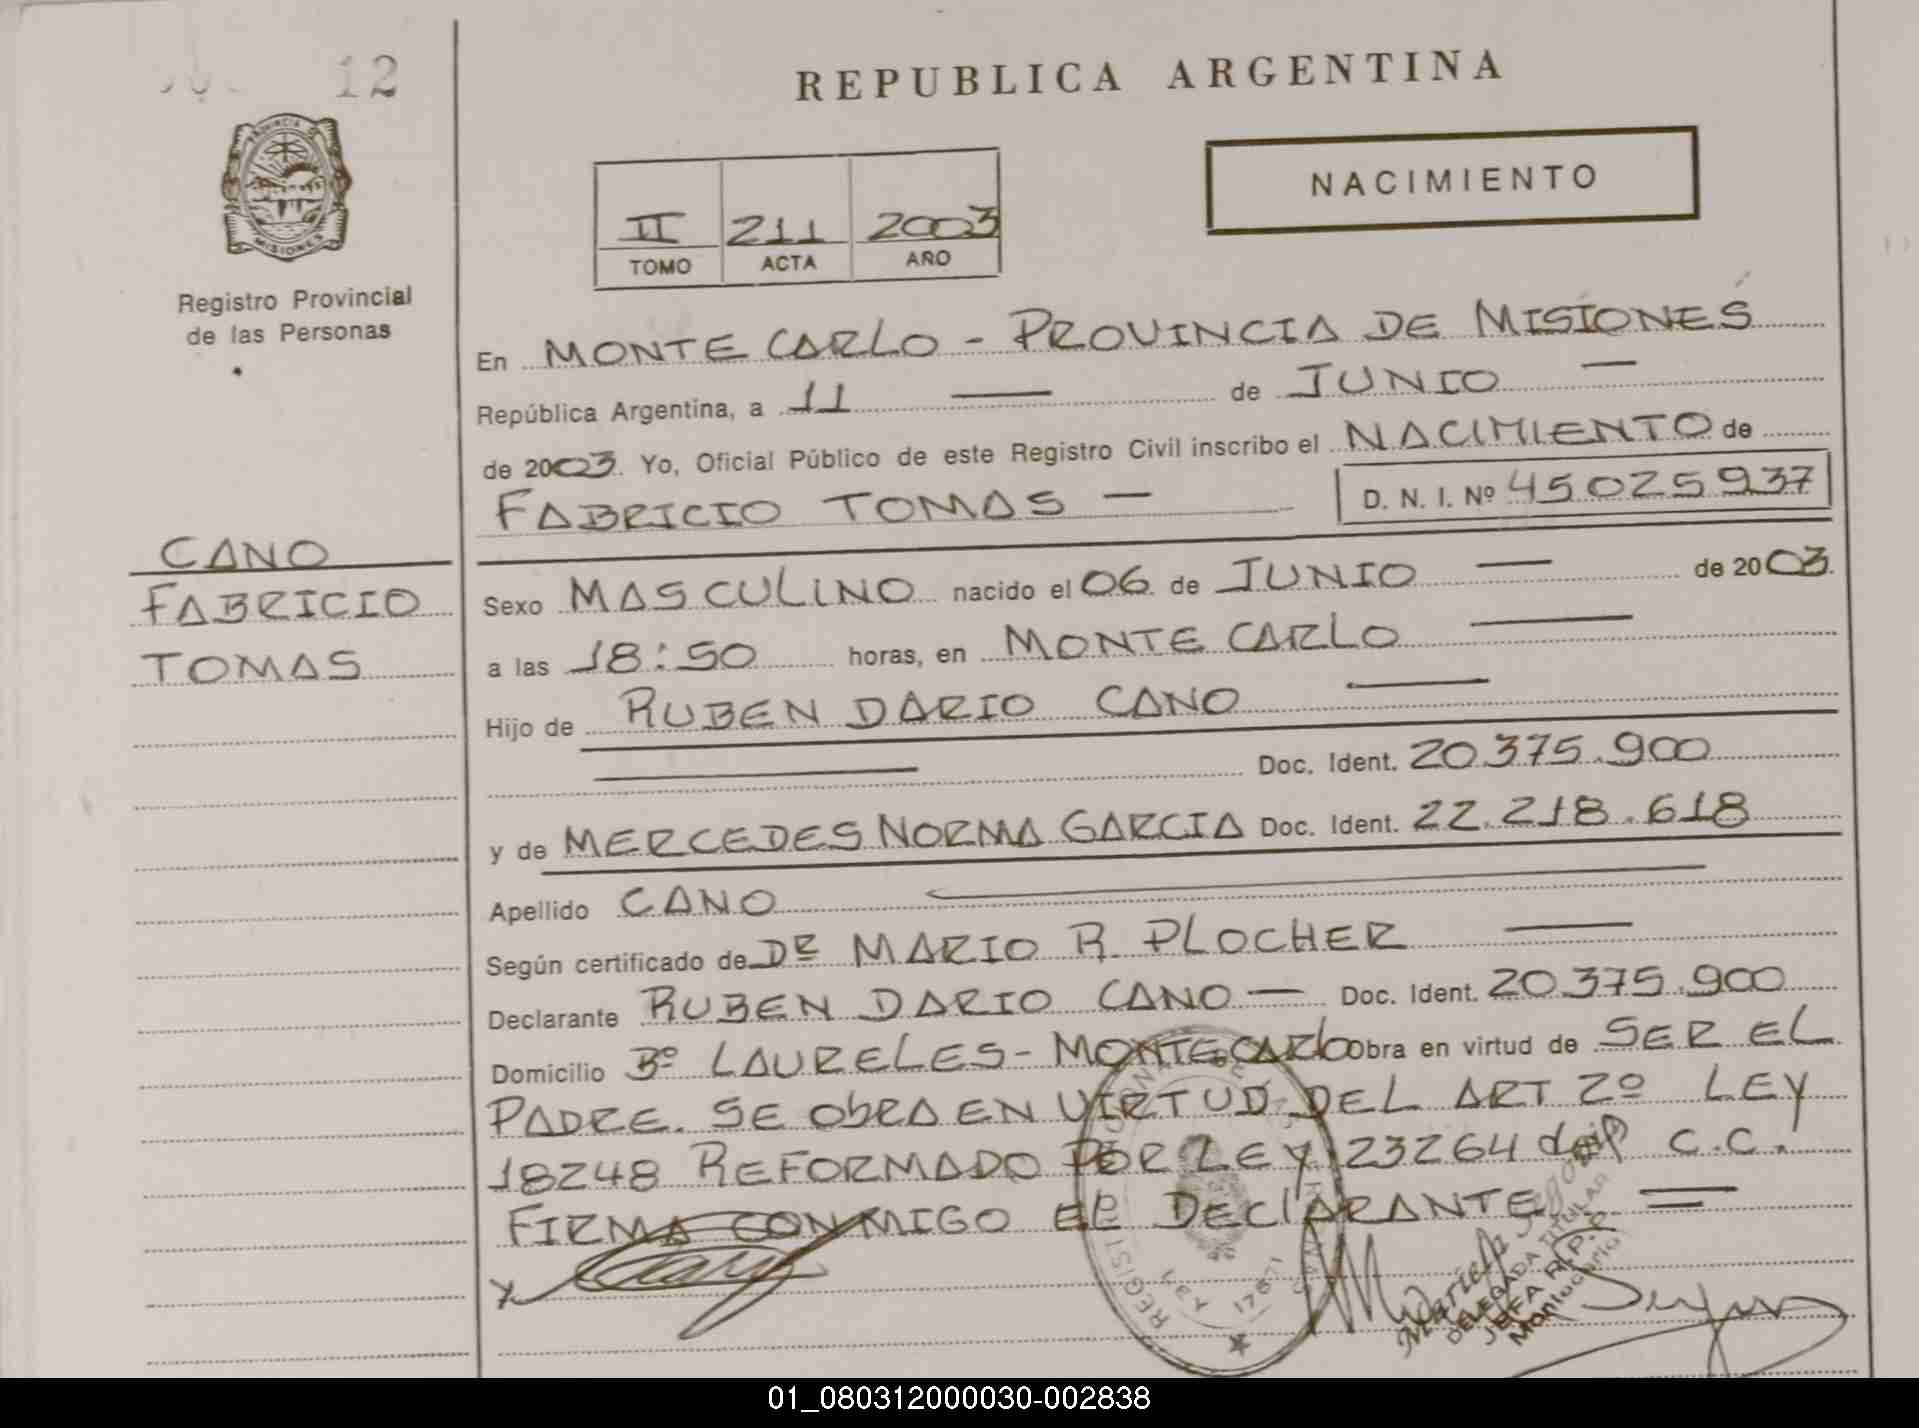 12
REPUBLICA ARGENTINA
NACIMIENTO
PROVINCIA D
MISIONES
Registro Provincial
de las Personas
II 211 2003
TOMO ACTA AÑO
En MONTE CARLO - PROVINCIA DE MISIONES
República Argentina, a 11 — de JUNIO —
de 2003. Yo, Oficial Público de este Registro Civil inscribo el NACIMIENTO de
FABRICIO TOMAS —
D. N. I. Nº 45025937
CANO
FABRICIO
TOMAS
Sexo MASCULINO nacido el 06 de JUNIO — de 2003.
a las 18:50 horas, en MONTE CARLO —
Hijo de RUBEN DARIO CANO —
— Doc. Ident. 20.375.900
y de MERCEDES NORMA GARCIA Doc. Ident. 22.218.618
Apellido CANO —
Según certificado de Dr MARIO R. PLOCHER —
Declarante RUBEN DARIO CANO — Doc. Ident. 20.375.900
Domicilio Bº LAURELES - MONTECARLO Obra en virtud de SER EL
PADRE. SE ObRA EN VIRTUD DEL ART 2º LEY
18248 REFORMADO POR LEY 23264 del C.C.
FIRMA CONMIGO EL DECLARANTE =
DELEGADA TITULAR
JEFA R.P.P.
Montecarlo
01_080312000030-002838